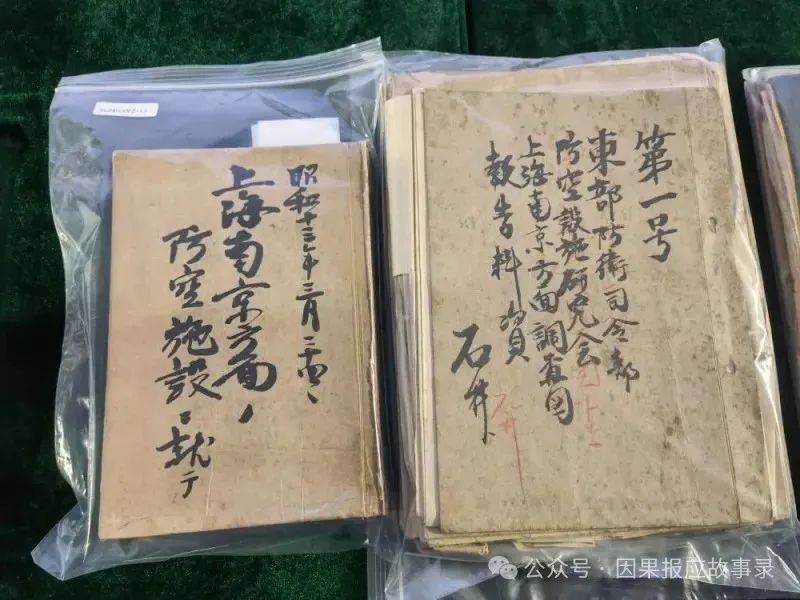 昭和十三年三月二十四、
上海南京方面ノ
防空施設ニ就テ
第一号
東部防衛司令部
防空設施研究会
上海南京方面調査団
報告料資
石井
石井
公众号·因果报应故事录